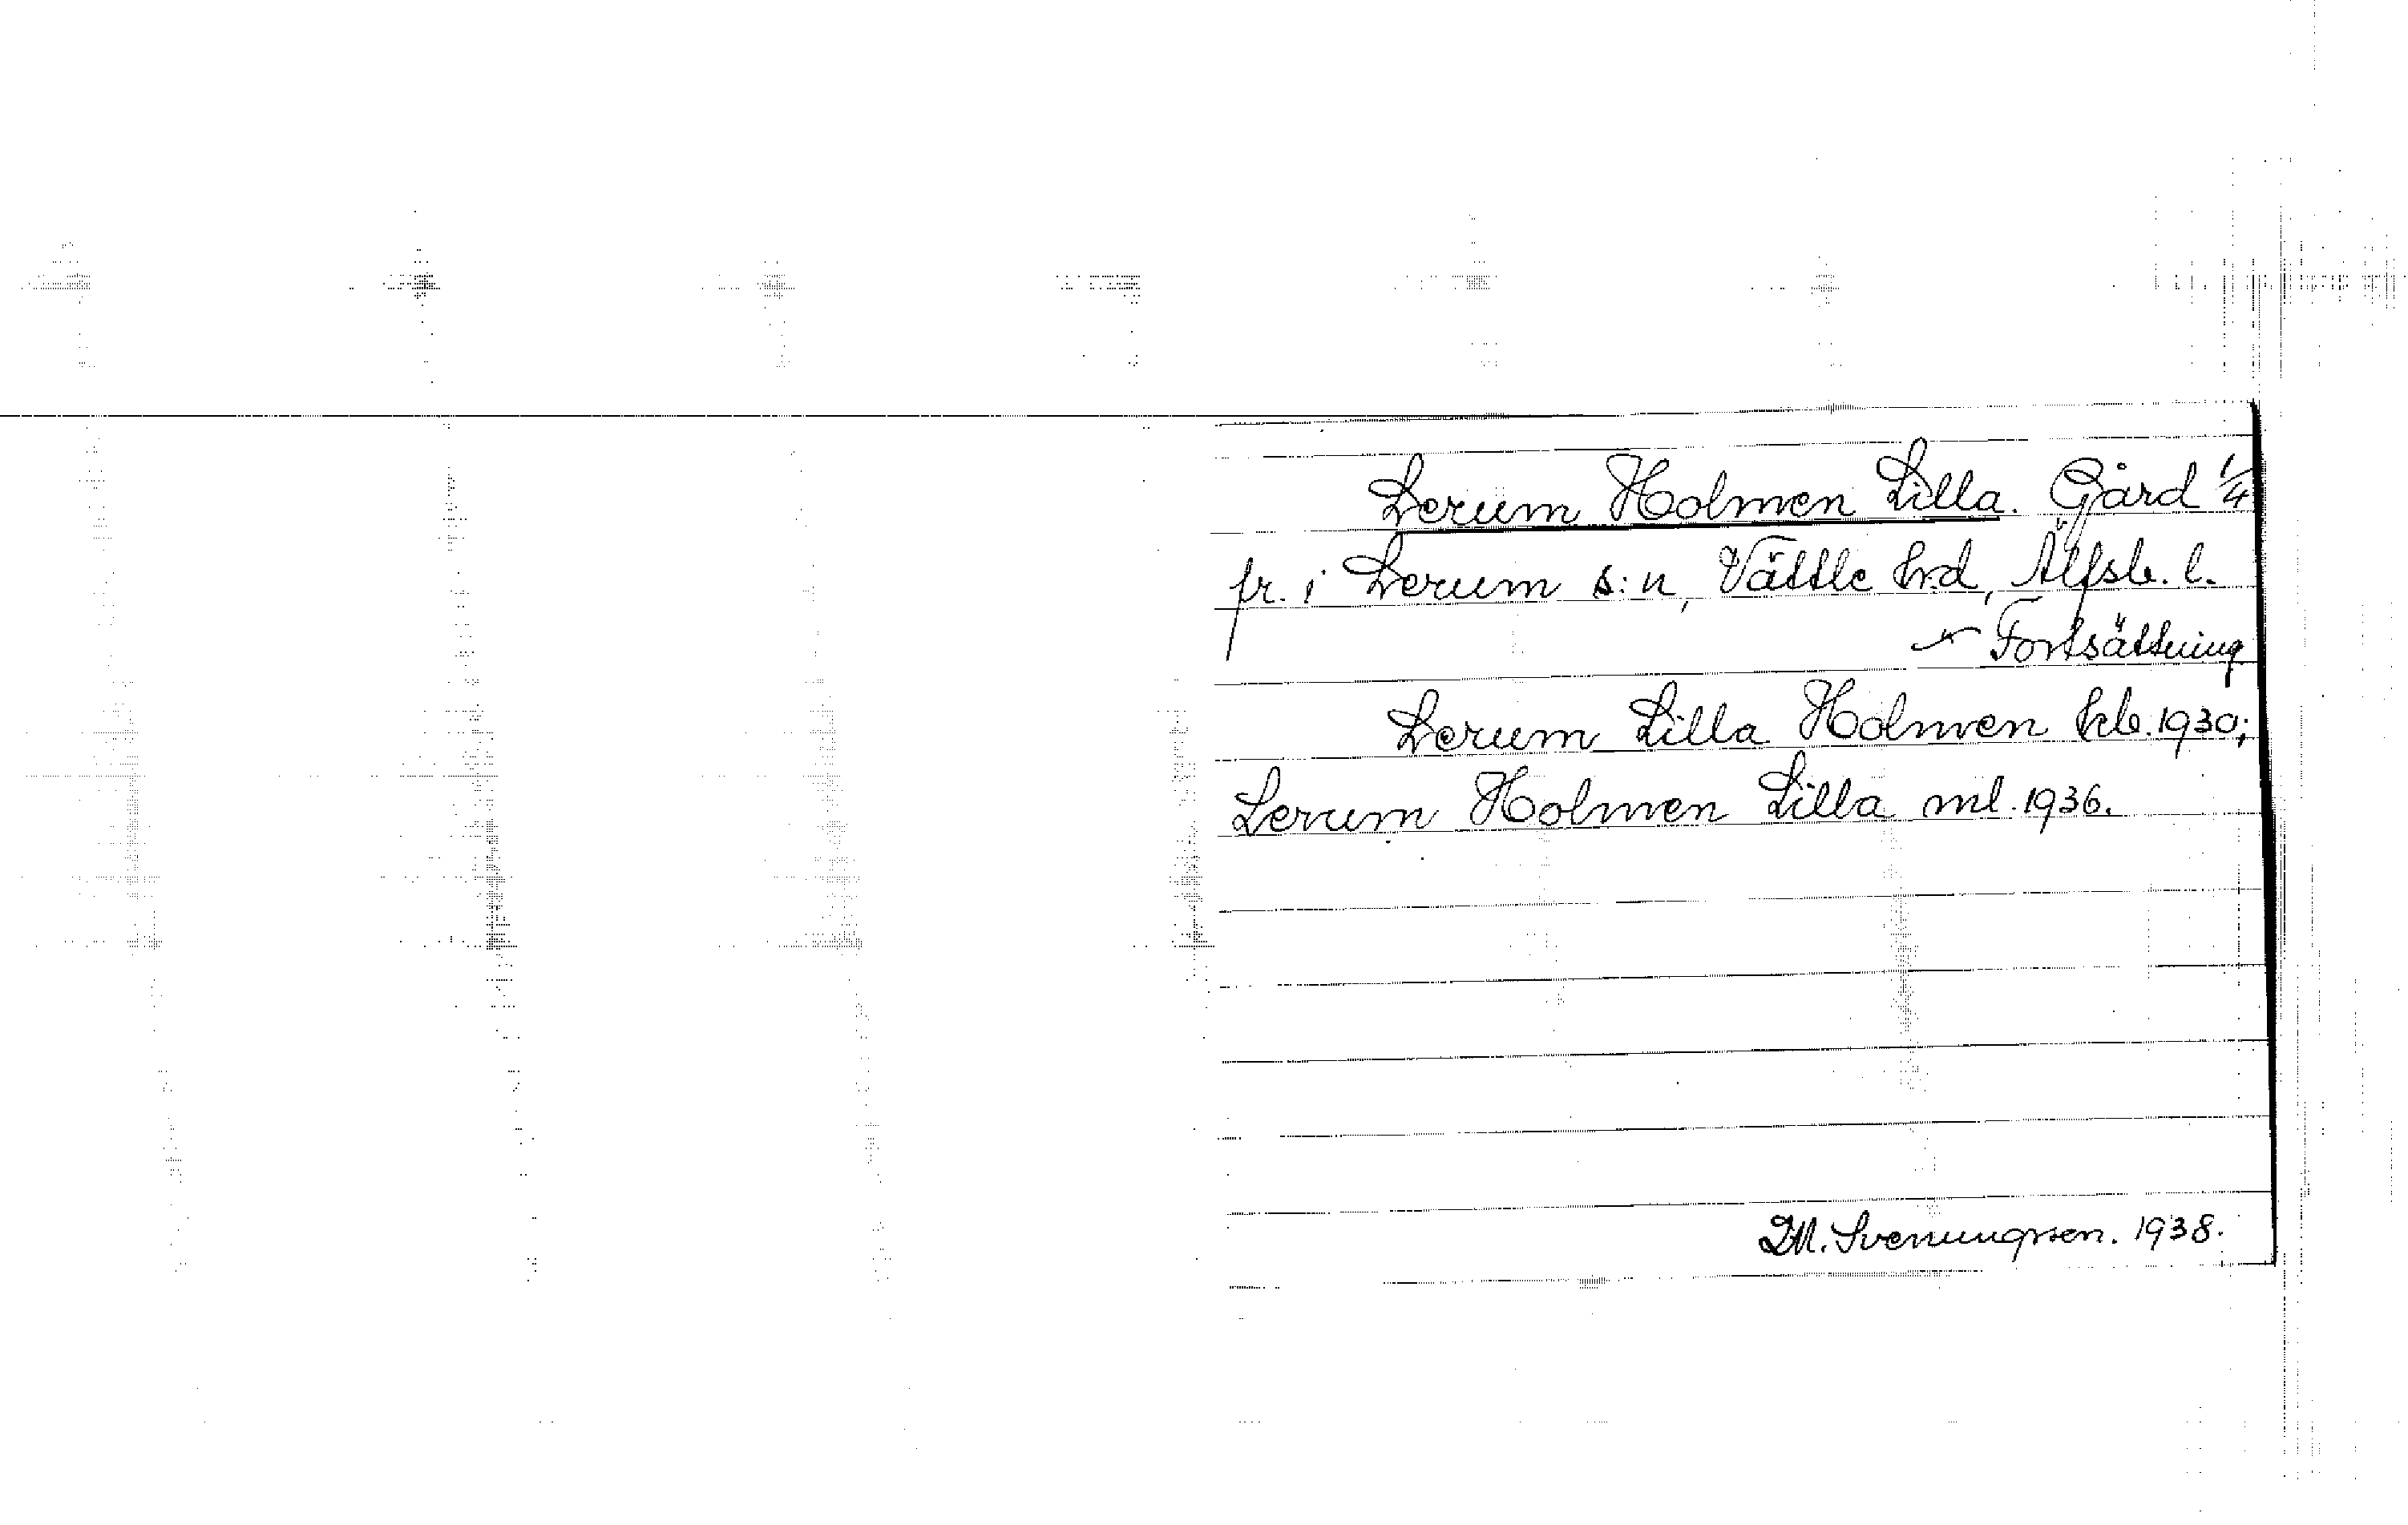 Lerum Holmen Lilla. Gård 1/4
fr. i Lerum s:n, Vättle hrd, Älfsb. l.
Fortsättning
Lerum Lilla Holmen kb. 1930;
Lerum Holmen Lilla ml. 1936.
M. Svenungsson. 1938.